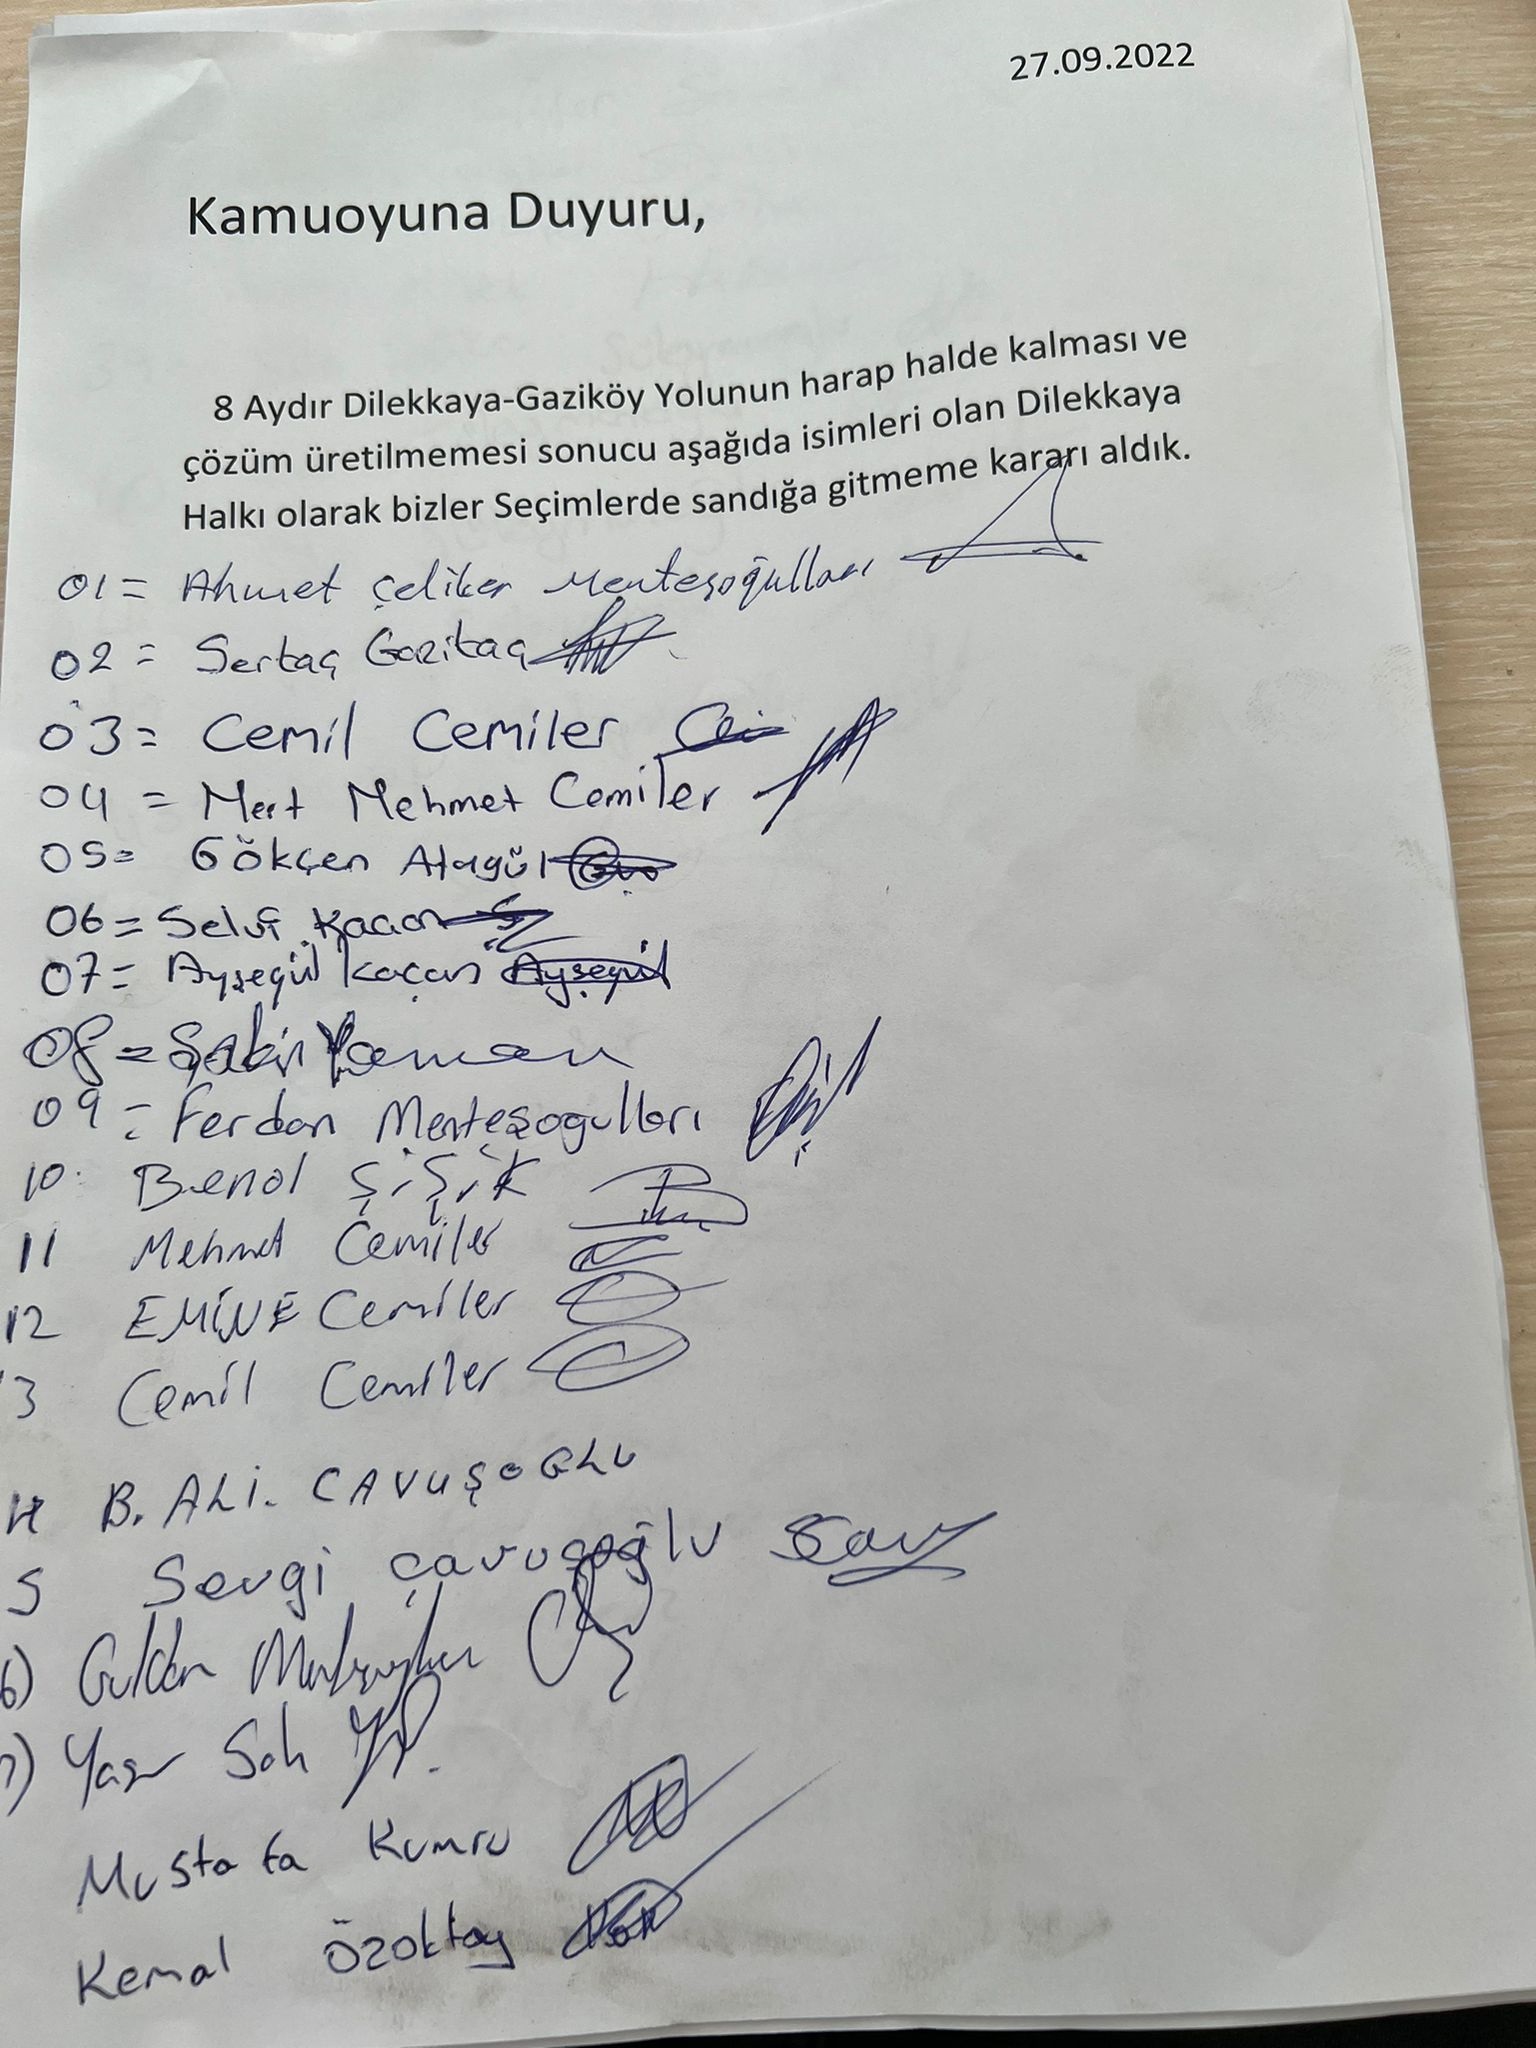 27.09.2022
Kamuoyuna Duyuru,
8 Aydır Dilekkaya-Gaziköy Yolunun harap halde kalması ve
çözüm üretilmemesi sonucu aşağıda isimleri olan Dilekkaya
Halkı olarak bizler Seçimlerde sandığa gitmeme kararı aldık.
01= Ahmet Çeliker Menteşoğulları
02= Sertaç Gazitaç
03= Cemil Cemiler
04= Mert Mehmet Cemiler
05= Gökçen Atagül
06= Selvi Kaçan
07= Ayşegül Kaçan Ayşegül
08= Şakir Yaman
09= Ferdan Menteşoğulları
10 Benol Şişik
11 Mehmet Cemiler
12 EMİNE Cemiler
3 Cemil Cemiler
14 B. ALİ. CAVUŞOĞLU
5 Sevgi Çavuşoğlu
6) Gulden
7) Yaşar
Mustafa Kumru
Kemal Özoktay